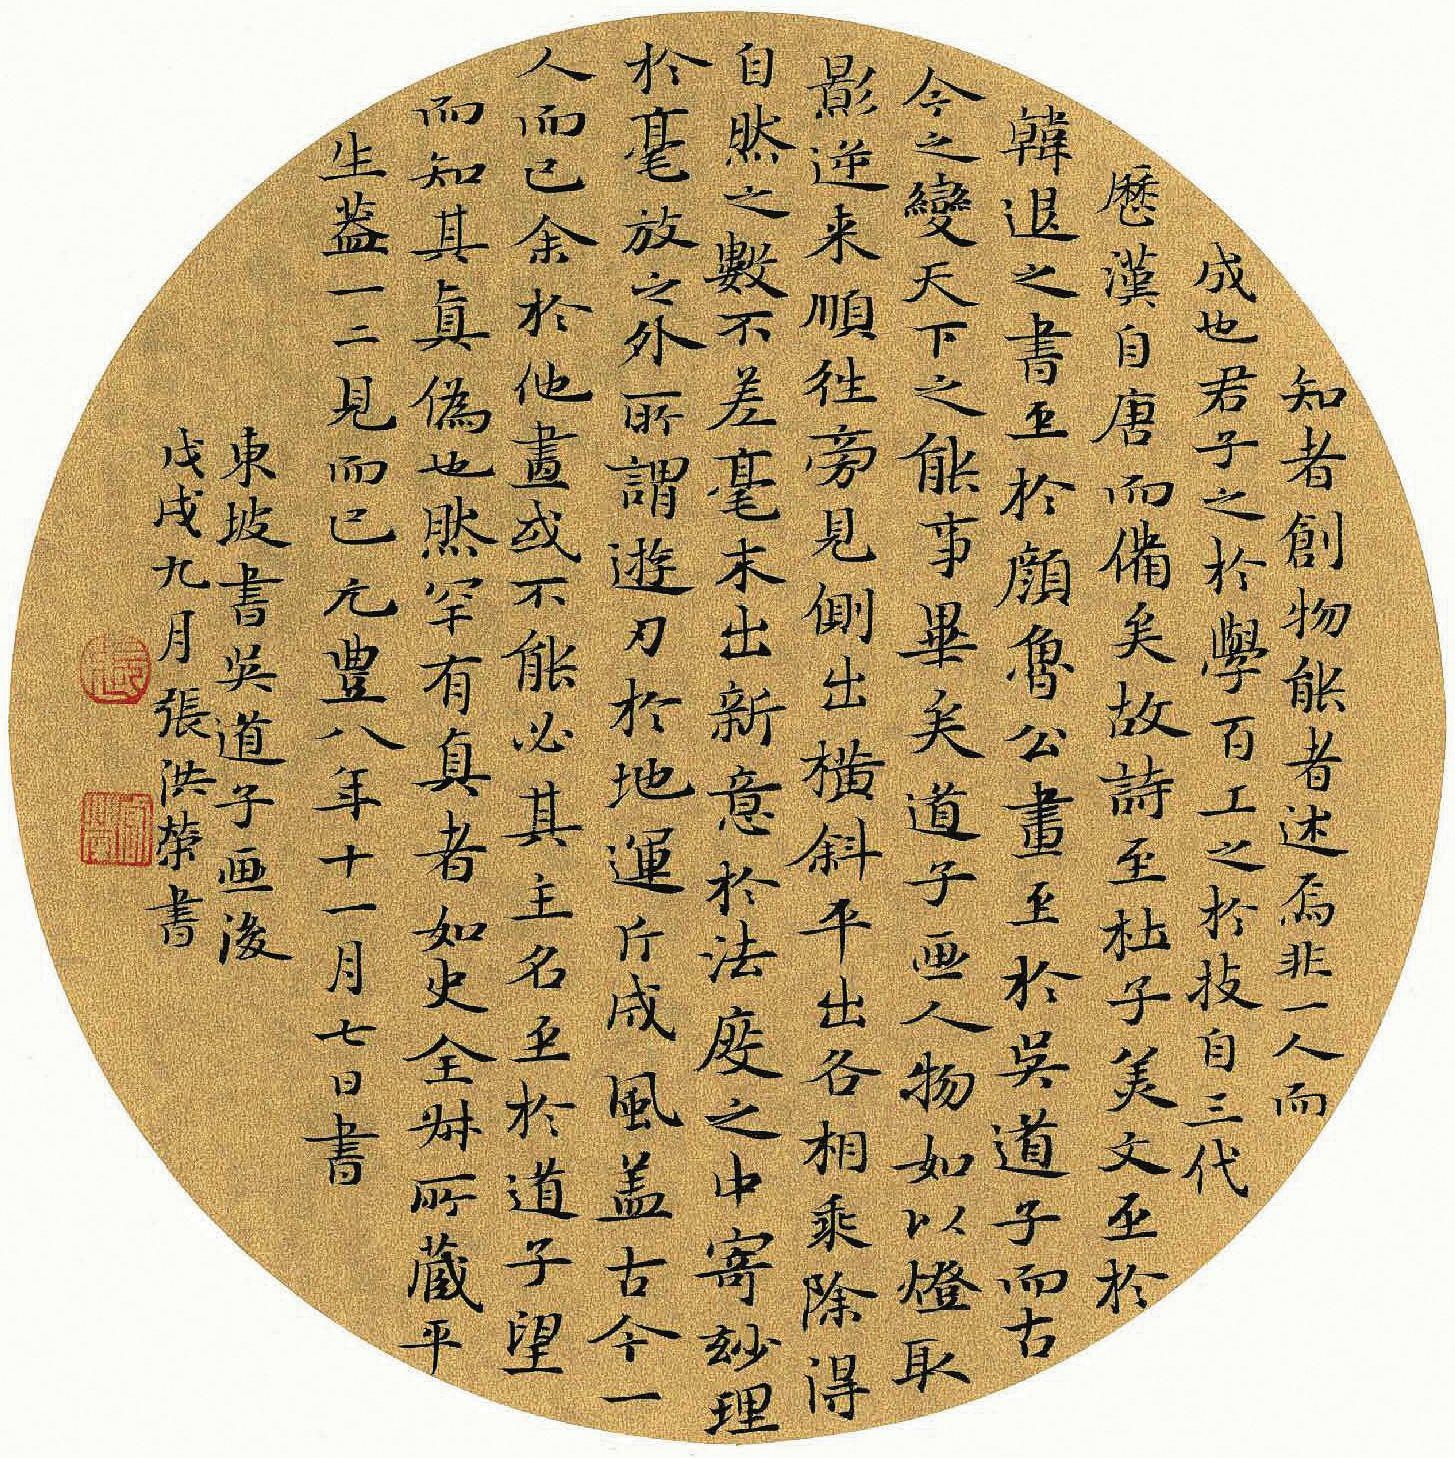 知者創物能者述焉非一人而
成也君子之於學百工之於技自三代
歷漢自唐而備矣故詩至杜子美文至於
韓退之書至於顏魯公畫至於吳道子而古
今之變天下之能事畢矣道子画人物如以燈取
影逆来順往旁見側出橫斜平出各相乘除得
自然之數不差毫末出新意於法度之中寄妙理
於毫放之外所謂遊刃於地運斤成風盖古今一
人而已余於他畫或不能必其主名至於道子望
而知其真偽也然罕有真者如史全叔所蔵平
生蓋一二見而已元豊八年十一月七日書
東坡書吳道子画後
戊戌九月張洪荣書